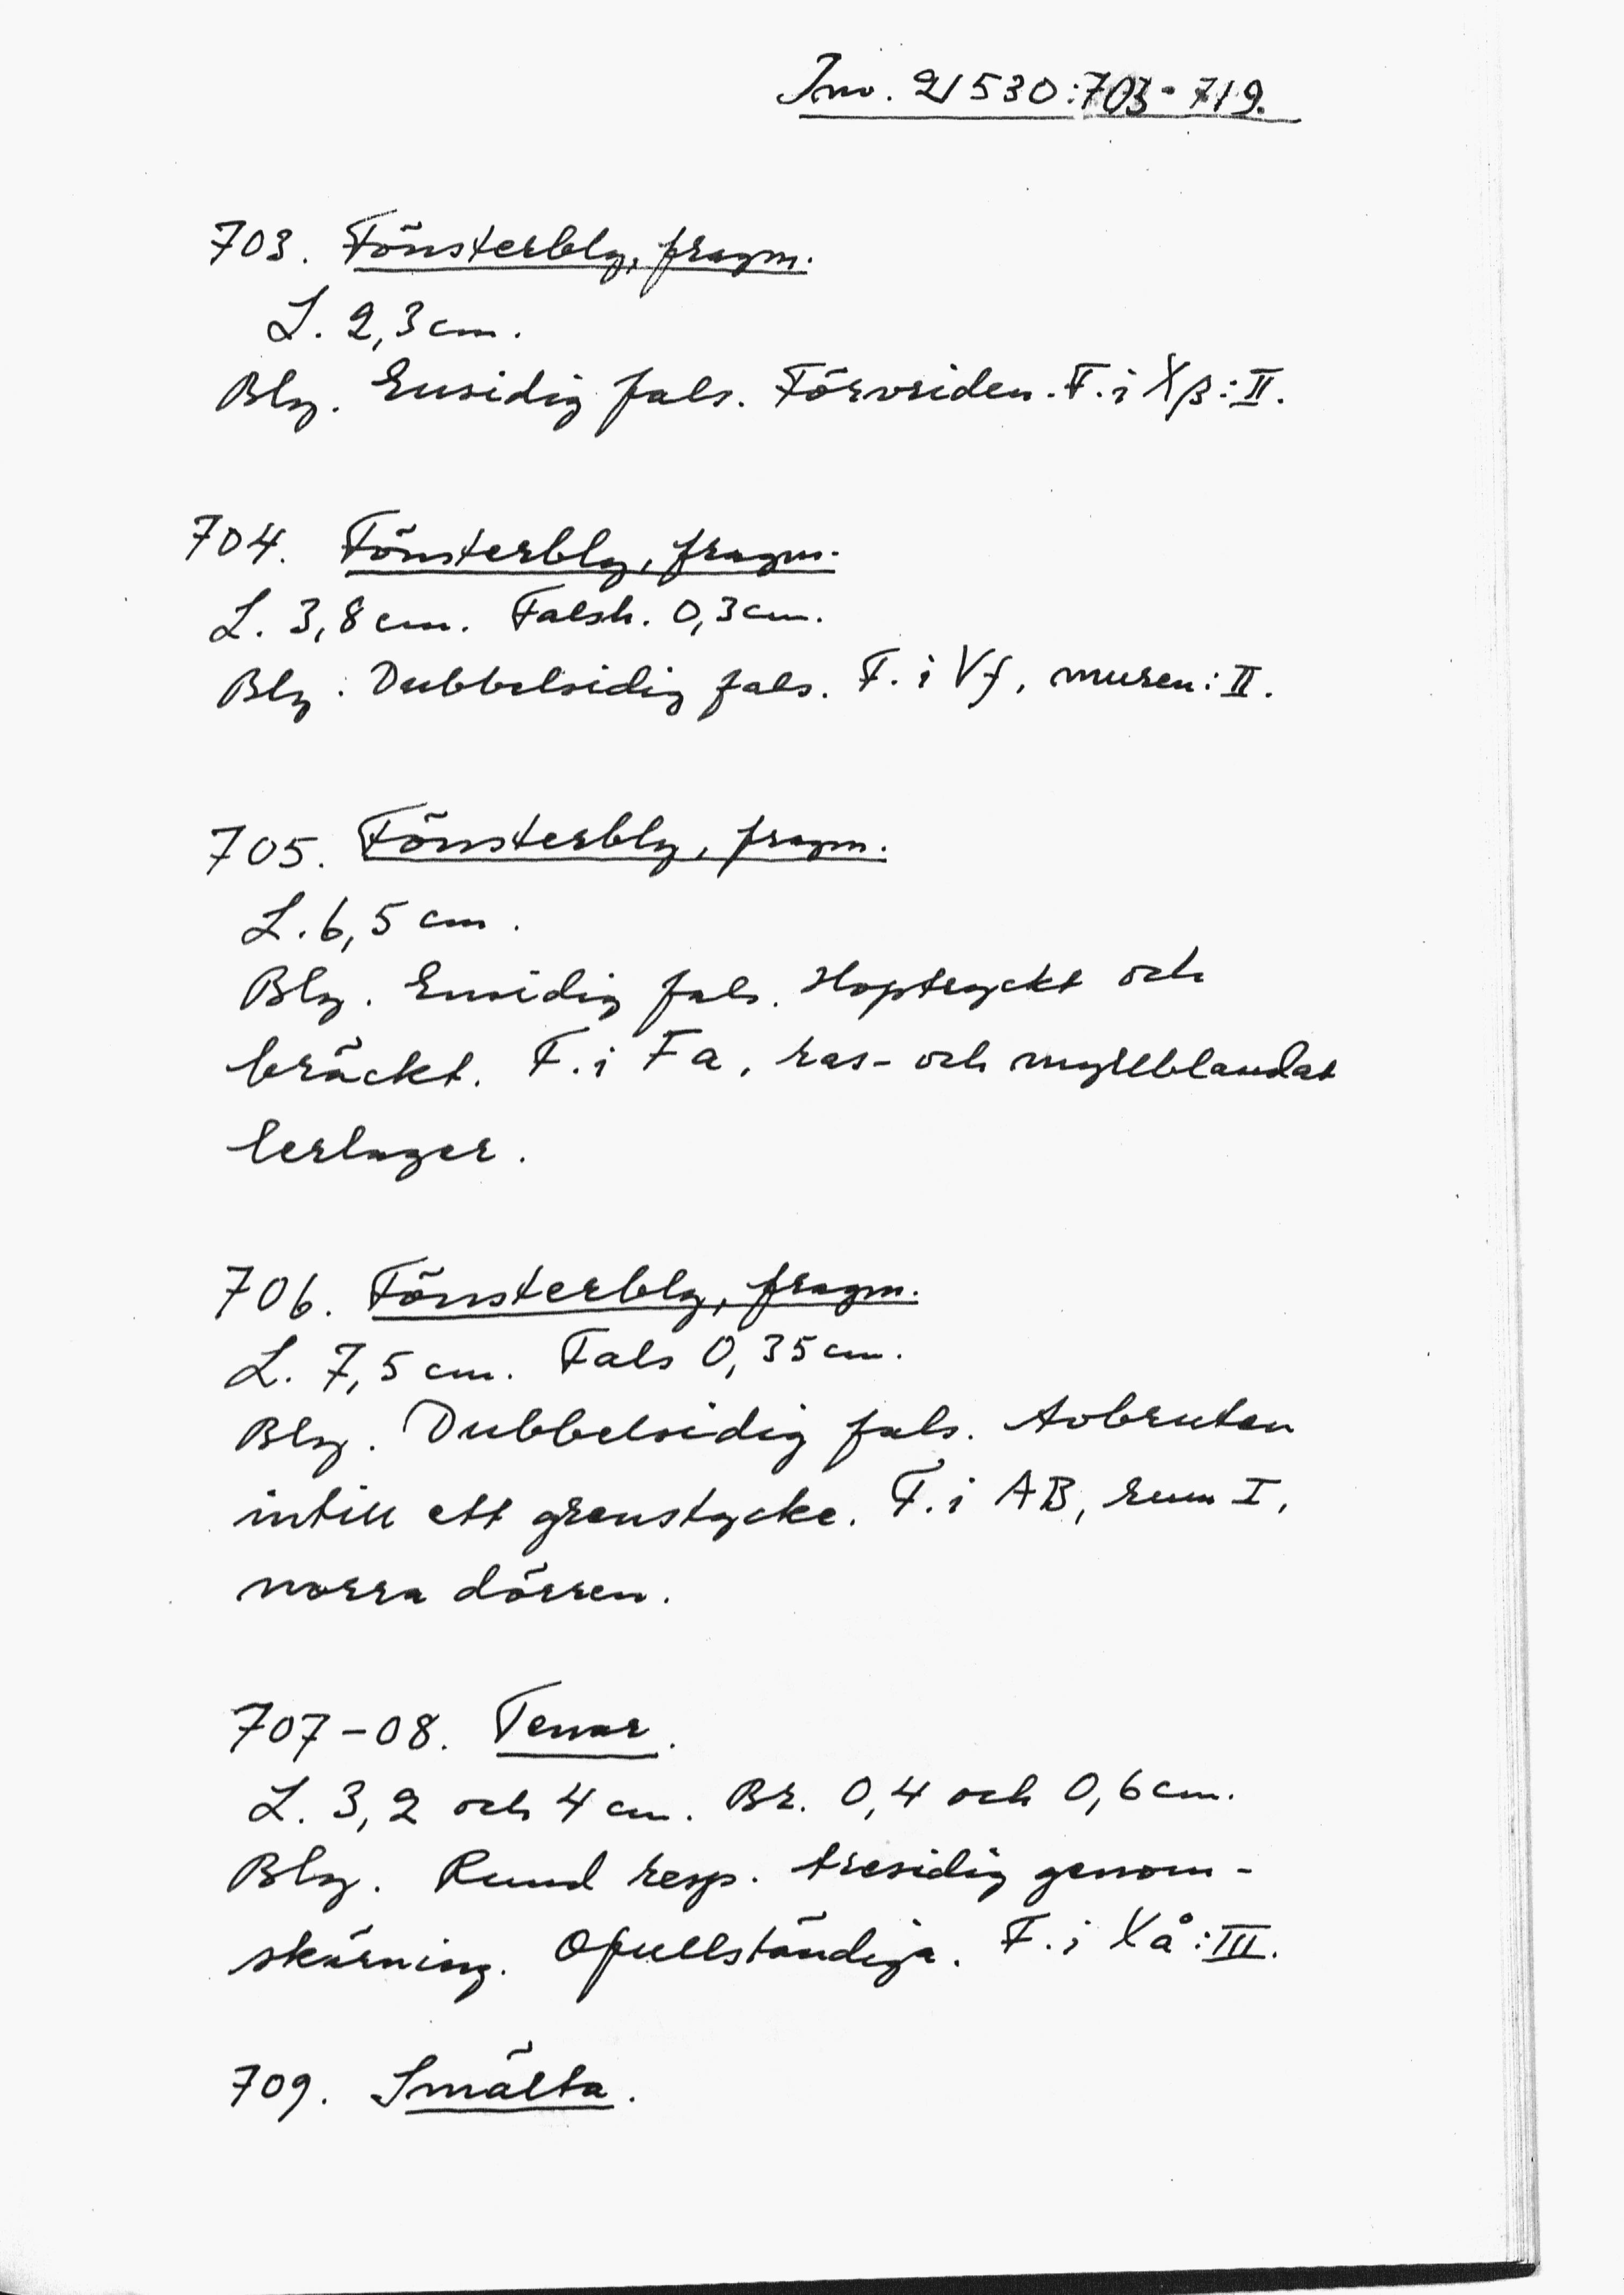 Inv. 21530:703-719.
703. Fönsterbly, fragm.
L. 2,3 cm.
Bly. Ensidig fals. Förvriden. F. i Xβ:II.
704. Fönsterbly, fragm.
L. 3,8 cm. Falsh. 0,3 cm.
Bly. Dubbelsidig fals. F. i Vf, muren: II.
705. Fönsterbly, fragm.
L. 6,5 cm.
Bly. Ensidig fals. Hoptryckt och
bräckt. F. i Fa, ras- och myllblandat
lerlager.
706. Fönsterbly, fragm.
L. 7,5 cm. Fals 0,35 cm.
Bly. Dubbelsidig fals. Avbruten
intill ett grenstycke. F. i AB, rum I,
norra dörren.
707-08. Tenar.
L. 3,2 och 4 cm. Br. 0,4 och 0,6 cm.
Bly. Rund resp. tresidig genom-
skärning. Ofullständiga. F. i Xå:III.
709. Smälta.